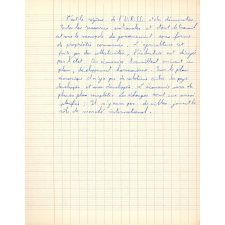 C'est le régime de l'U.R.S.S. et des démocraties
toutes les ressources nationales et dont le travail
est sous le monopole du gouvernement sous forme
de propriété commune. L'agriculture est
faite par des collectivités, l'industrie est dirigée
par l'état. Ces domaines travaillent suivant un
plan, développement harmonieux. Sur le plan
économique il n'y a pas de relations entre les pays
développés et sous développés. L'économie sera de
plus en plus complète. Les échanges sont eux aussi
planifiés. Il n'y aura pas de jouant le
rôle de monde international.